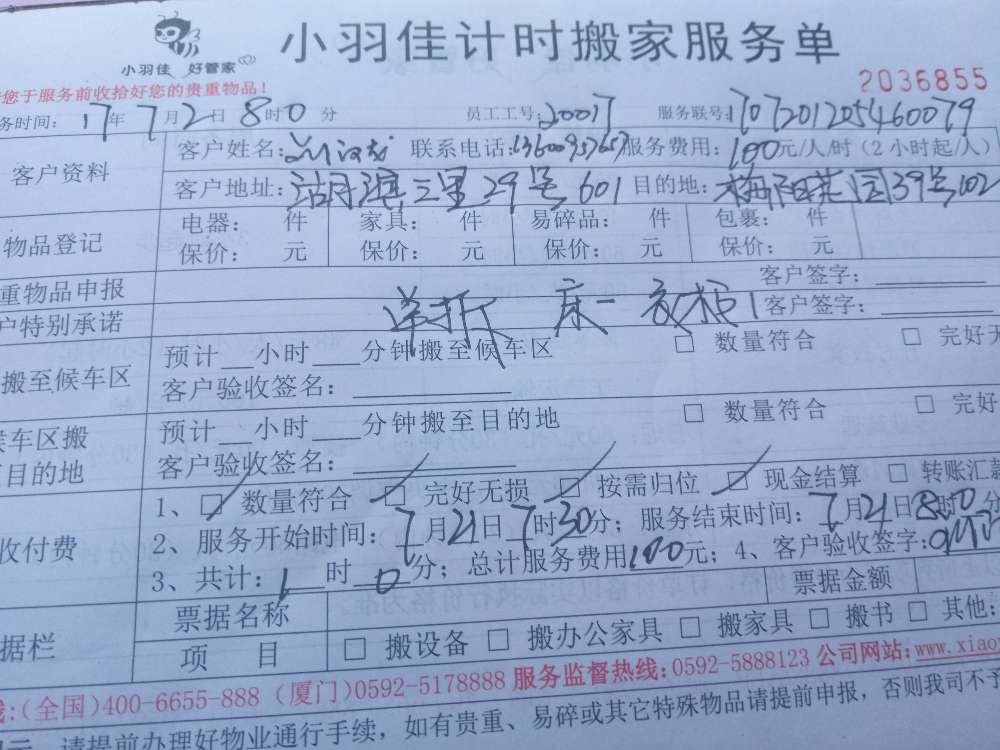 小羽佳 好管家
小羽佳计时搬家服务单
2036855
您于服务前收拾好您的贵重物品!
务时间: 17年7月2日8时0分 员工工号: 20017 服务联号:
客户资料
客户姓名: 联系电话: 服务费用: 100元/人/时(2小时起/人)
客户地址: 湖滨三里29号601 目的地: 梅阳花园39号102
物品登记
电器: 件 家具: 件 易碎品: 件 包裹: 件
保价: 元 保价: 元 保价: 元 保价: 元
重物品申报 客户签字:
户特别承诺 单拆 床一 客户签字:
搬至候车区
预计__小时____分钟搬至候车区 □ 数量符合 □ 完好无
客户验收签名:
候车区搬
目的地
预计__小时____分钟搬至目的地 □ 数量符合 □ 完好
客户验收签名:
收付费
1、□ 数量符合 □ 完好无损 □ 按需归位 □ 现金结算 □ 转账汇款
2、服务开始时间: 7月21日7时30分; 服务结束时间: 7月21日8时0分
3、共计: 1时0分; 总计服务费用100元; 4、客户验收签字:
据栏
票据名称 票据金额
项 目 □ 搬设备 □ 搬办公家具 □ 搬家具 □ 搬书 □ 其他:
线:(全国)400-6655-888 (厦门)0592-5178888 服务监督热线:0592-5888123 公司网站:www.xiao
请提前办理好物业通行手续, 如有贵重、易碎或其它特殊物品请提前申报, 否则我司不予